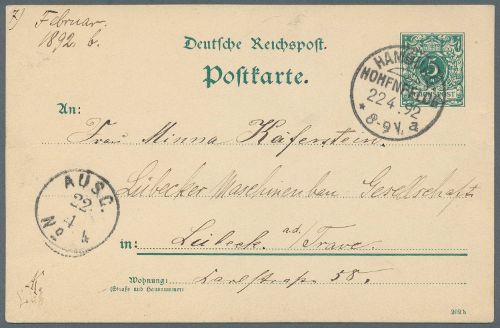 7) Februar.
1892 b.
Deutsche Reichspost.
Postkarte.
5
HAMBURG
HOHENFELDE
22 4. 92
* 8-9 V. a
An:
Frau Minna Käferstein.
Lübecker Maschinenbau Gesellschaft
AUSG.
22
4
No 4
in: Lübeck. a/d. Trave.
Wohnung: Karlstraße 58.
(Straße und Hausnummer)
292 b